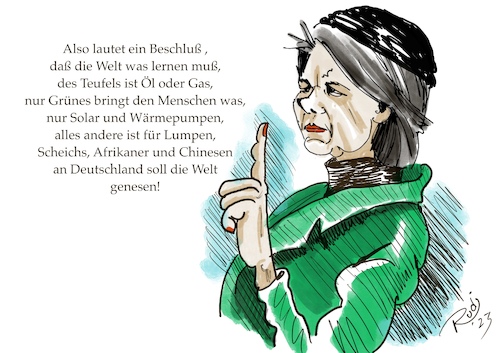 Also lautet ein Beschluß ,
daß die Welt was lernen muß,
des Teufels ist Öl oder Gas,
nur Grünes bringt den Menschen was,
nur Solar und Wärmepumpen,
alles andere ist für Lumpen,
Scheichs, Afrikaner und Chinesen
an Deutschland soll die Welt
genesen!
Rudi.23